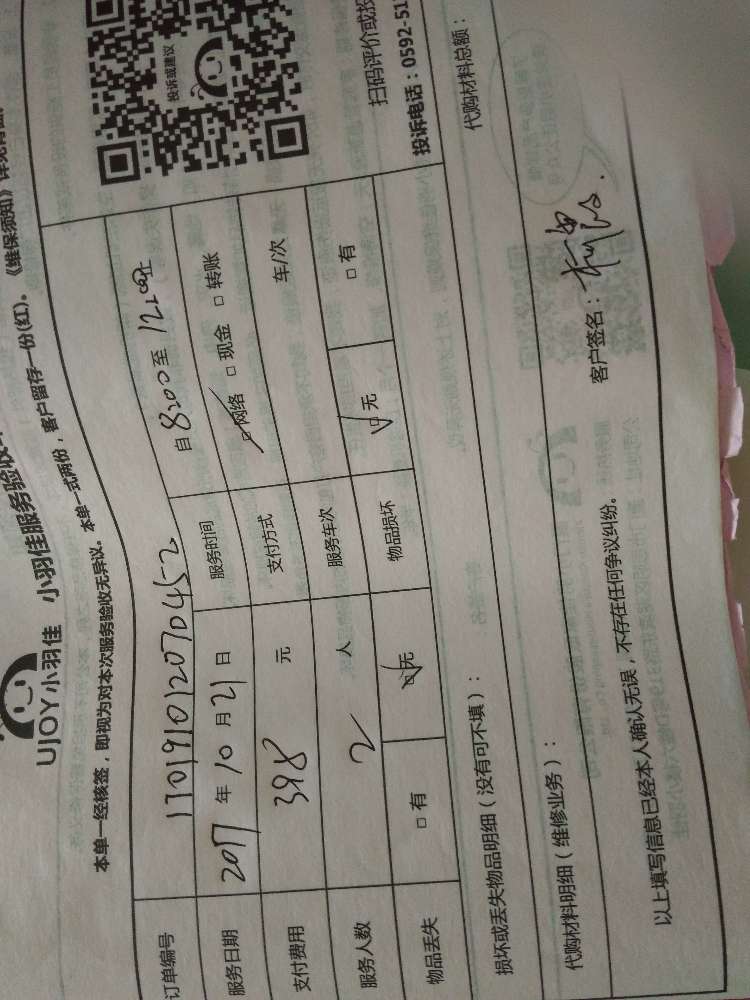 UJOY小羽佳 小羽佳服务验收
本单一经核签，即视为对本次服务验收无异议。本单一式两份，客户留存一份(红)。《维保须知》
投诉或建议
扫码评价或投
投诉电话：0592-51
订单编号 110191012070452
服务日期 2017年10月21日 服务时间 自8:00至12:00止
支付费用 398元 支付方式 网络 □现金 □转账
服务人数 2人 服务车次 车/次
物品丢失 □有 无 物品损坏 无 □有
损坏或丢失物品明细（没有可不填）：
代购材料明细（维修业务）： 代购材料总额：
以上填写信息已经本人确认无误，不存在任何争议纠纷。 客户签名：